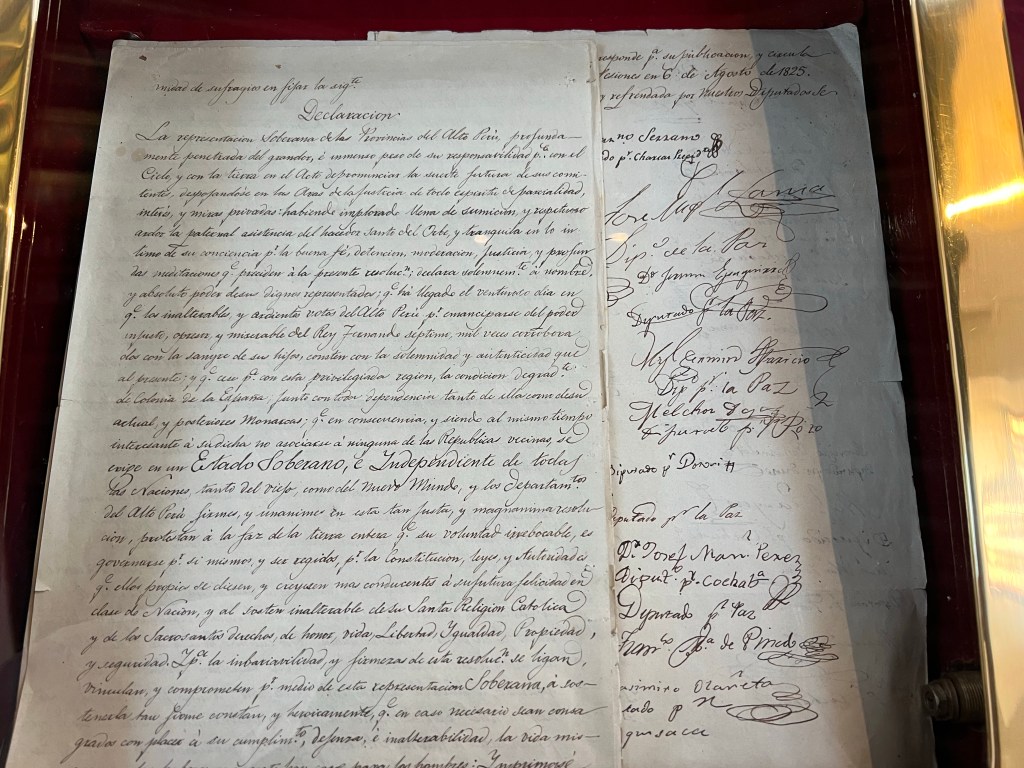 midad de sufragios en fijar la sigte.
Declaracion
La representacion Soberana de las Provincias del Alto Perú, profunda-
mente penetrada del grandor, é inmenso peso de su responsabilidad pa. con el
Cielo, y con la tierra en el Acto de pronunciar la suerte futura de sus comi-
tentes, despojandose en las Aras de la justicia de todo espiritu de parcialidad,
interes, y miras privadas: habiendo implorado llena de sumicion, y respetuoso
ardor la paternal asistencia del hacedor Santo del Orbe, y tranquila en lo in
timo de su conciencia pr. la buena fé, detencion, moderacion, justicia, y profun
das meditaciones qe. preciden á la presente resolucn.; declara solemnemte. á nombre,
y absoluto poder de sus dignos representados; qe. ha llegado el venturoso dia en
qe. los inalterables, y ardientes votos del Alto Perú pr. emanciparse del poder
injusto, opresor, y miserable del Rey Fernando septimo, mil veces corrobora
dos con la sangre de sus hijos, consten con la solemnidad y autenticidad que
al presente; y qe. cese pa. con esta privilegiada region, la condicion degradte.
de Colonia de la España, junto con toda dependencia, tanto de ella como de su
actual, y posteriores Monarcas: qe. en consecuencia, y siendo al mismo tiempo
interesante á su dicha no asociarse á ninguna de las Republicas vecinas, se
erige en un Estado Soberano, é Independiente de todas
las Naciones, tanto del viejo, como del Nuevo Mundo, y los departamtos.
del Alto Perú firmes, y unanimes en esta tan justa, y magnanima resolu-
cion, protestan á la faz de la tierra entera qe. su voluntad irrebocable, es
governarse pr. si mismos, y ser regidos, pr. la Constitucion, leyes, y Autoridades
qe. ellos propios se diesen, y creyesen mas conducentes á su futura felicidad en
clase de Nación, y al sosten inalterable de su Santa Religion Catolica
y de los Sacrosantos derechos, de honor, vida, Libertad, Ygualdad, Propiedad,
y seguridad. Y pa. la inbariavilidad, y firmeza de esta resolucn. se ligan,
vinculan, y comprometen pr. medio de esta representacion Soberana, á sos-
tenerla tan firme, constan, y heroicamente, qe. en caso necesario sean consa
grados con placer á su cumplimto., defensa, é inalterabilidad, la vida mis-
para los hombres: Ymprimase
responde pa. su publicacion, y circula
sesiones en 6 de Agosto de 1825.
y refrendada por Nuestros Diputados Se
Serrano
do pr. Charcas
Jose Miga. Lanza
Dip. de la Paz
Diputado pr. la Paz.
Mygl. Casimiro Aparicio
Dip pr. la Paz
Melchor
Diputado pr. Potosi
Diputado pr. la Paz
Dr. Josef Manl. Perez
Diput. pr. Cochaba.
Diputado pr. Paz
Franco. Ma. de Pinedo
asimiro Olañeta
tado pr
quisaca